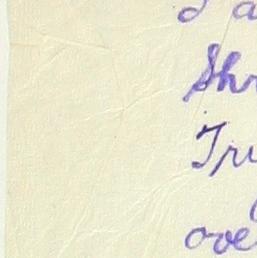 Shr
Tru
ove